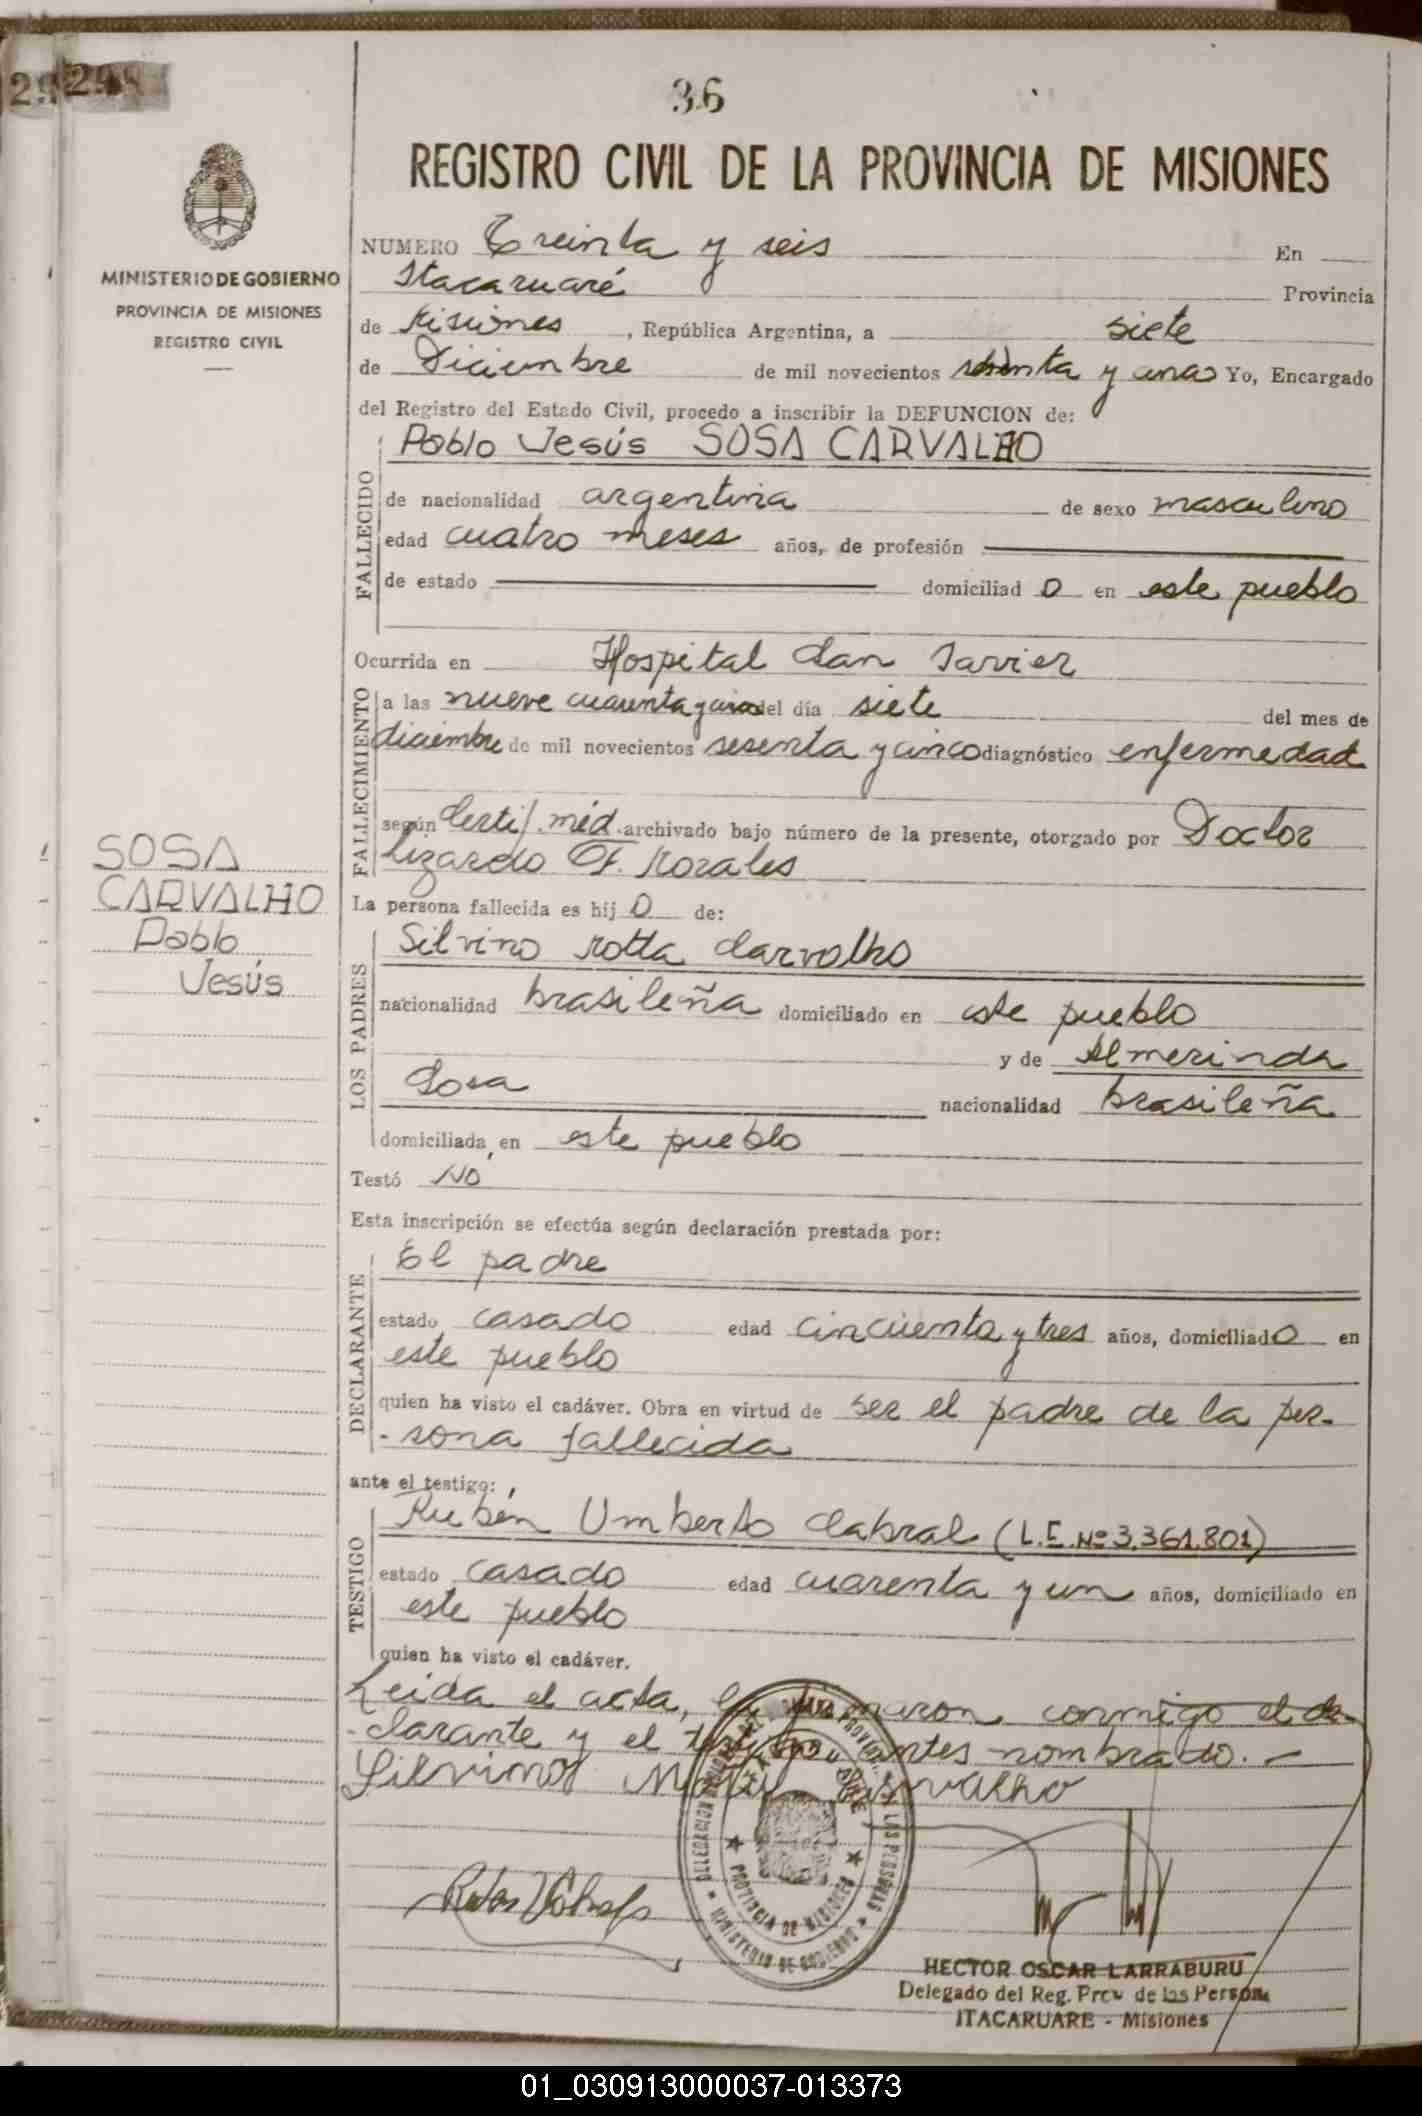 29 298
36
REGISTRO CIVIL DE LA PROVINCIA DE MISIONES
MINISTERIO DE GOBIERNO
PROVINCIA DE MISIONES
REGISTRO CIVIL
NUMERO Treinta y seis En
Itacaruaré Provincia
de Misiones, República Argentina, a siete
de Diciembre de mil novecientos y Yo, Encargado
del Registro del Estado Civil, procedo a inscribir la DEFUNCION de:
FALLECIDO
Pablo Jesús SOSA CARVALHO
de nacionalidad argentina de sexo masculino
edad cuatro meses años, de profesión
de estado domiciliad o en este pueblo
Ocurrida en Hospital San Javier
FALLECIMIENTO
a las nueve cuarenta y del día siete del mes de
diciembre de mil novecientos sesenta y cinco diagnóstico enfermedad
según Certif. méd. archivado bajo número de la presente, otorgado por Doctor
Lizardo F. Morales
SOSA
CARVALHO
Pablo
Jesús
La persona fallecida es hij o de:
LOS PADRES
Silvino Motta Carvalho
nacionalidad brasileña domiciliado en este pueblo
y de Almerinda
Sosa nacionalidad brasileña
domiciliada en este pueblo
Testó No
Esta inscripción se efectúa según declaración prestada por:
DECLARANTE
El padre
estado casado edad cincuenta y tres años, domiciliado en
este pueblo
quien ha visto el cadáver. Obra en virtud de ser el padre de la per-
-sona fallecida
ante el testigo:
TESTIGO
Rubén Umberto Cabral (L.E. Nº 3.361.801)
estado casado edad cuarenta y un años, domiciliado en
este pueblo
quien ha visto el cadáver.
Leída el acta, la firmaron conmigo el de-
-clarante y el testigo antes nombrado.-
Silvino Carvalho
PROVINCIA DE MISIONES
MINISTERIO DE GOBIERNO
HECTOR OSCAR LARRABURU
Delegado del Reg. Prov de las Person.
ITACARUARE - Misiones
01_030913000037-013373